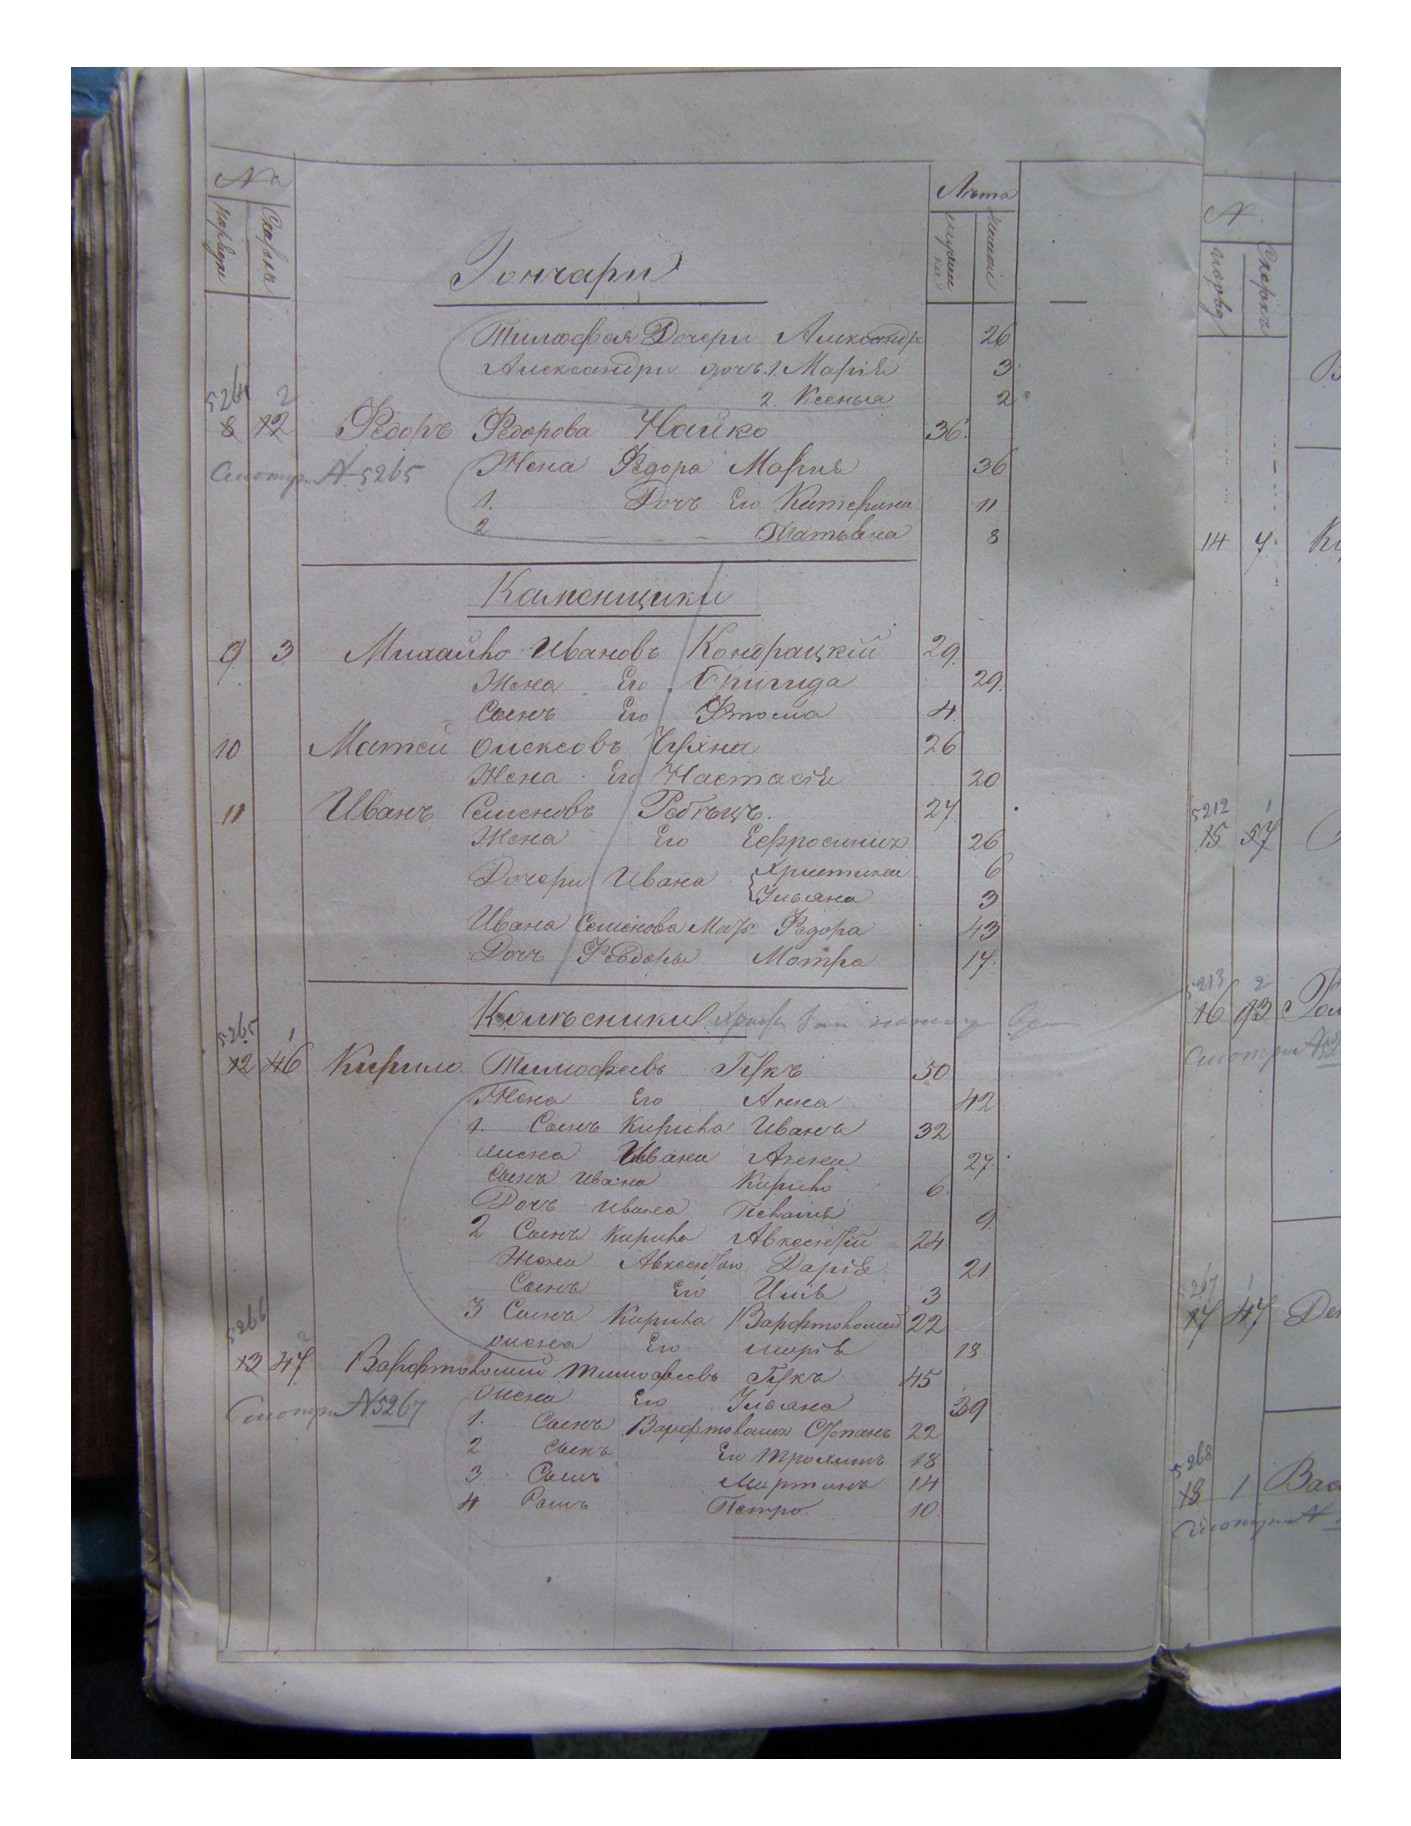 №
Лѣта
Гончари
Тимофея Дочери Александра 26
Александри дочь 1 Марія 3
2. Ксенья 2
5264 2
8 12 Федоръ Федорова Найко 36
Смотри № 5265
Жена Федора Мария 36
1. Дочъ Его Катерина 11
2 Татьяна 8
Каменщики
9 3 Михайло Ивановъ Кондрацкій 29
Жена Его Бригида 29
Сынъ Его Фтома 4
10 Матей Олексовъ 26
Жена Его Настасія 20
11 Иванъ Семеновъ 27
Жена Его Ефросиния 26
Дочери Ивана Христина 6
Ульяна 3
Ивана Семенова Мать Федора 43
Дочъ Федоры Мотра 17
Колѣсники
5265 1
12 46 Кирило Тимофеевъ Гукъ 50
Жена Его Анна 42
1. Сынъ Кирила Иванъ 32
жена Ивана Анна 27
Сынъ Ивана Кирило 6
Дочъ Ивана 9
2 Сынъ Кирила Авксентій 24
Жена Авксентія Дарія 21
Сынъ Его Илія 3
3 Сынъ Кирила Варфтоломей 22
жена Его Марія 18
5266 2
13 47 Варфтоломей Тимофеевъ Гукъ 45
Смотри № 5267
жена Его Ульяна 39
1. Сынъ Варфтоломея Степанъ 22
2 Сынъ Его Трохимъ 18
3 Сынъ Мартинъ 14
4 Петро 10
№
14 7
5212 1
15 57
5213 2
16 93
Смотри № 52
5267 1
17 47
5268
18 1
Смотри №